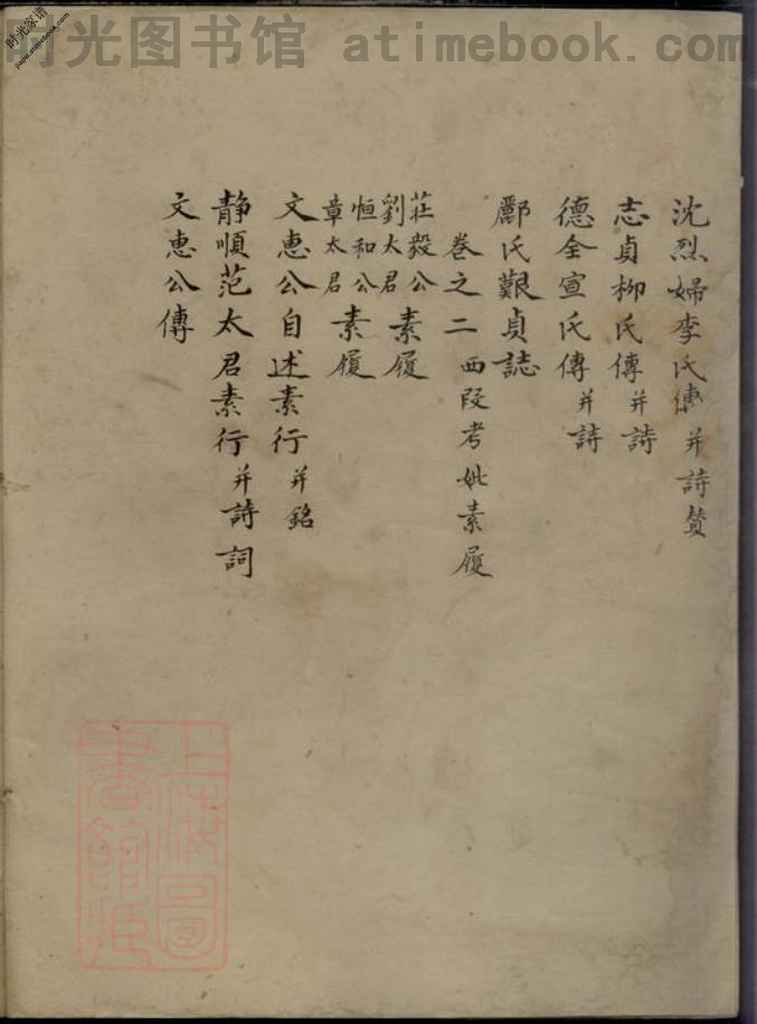 时光图书馆 atimebook.com
时光家谱
沈烈婦李氏傳 并詩贊
志貞柳氏傳 并詩
德全宣氏傳 并詩
酈氏艱貞誌
卷之二 西段考妣素履
莊毅公
劉太君 素履
恒和公
章太君 素履
文惠公自述素行 并銘
靜順范太君素行 并詩詞
文惠公傳
上海圖
書館藏